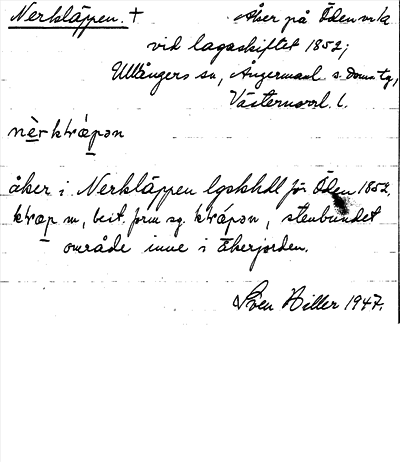 Nerkläppen. + Åker på Öden vid
vid lagaskiftet 1852;
Ullångers sn, Ångermanl. s. doms tg,
Västernorrl. l.
nèrkträ́pən
åker i Nerkläppen lgskhdl för Öden 1852.
kträp m, best. form sg. kträ́pən, stenbundet
område inne i åkerjorden.
Sven Hiller 1947.